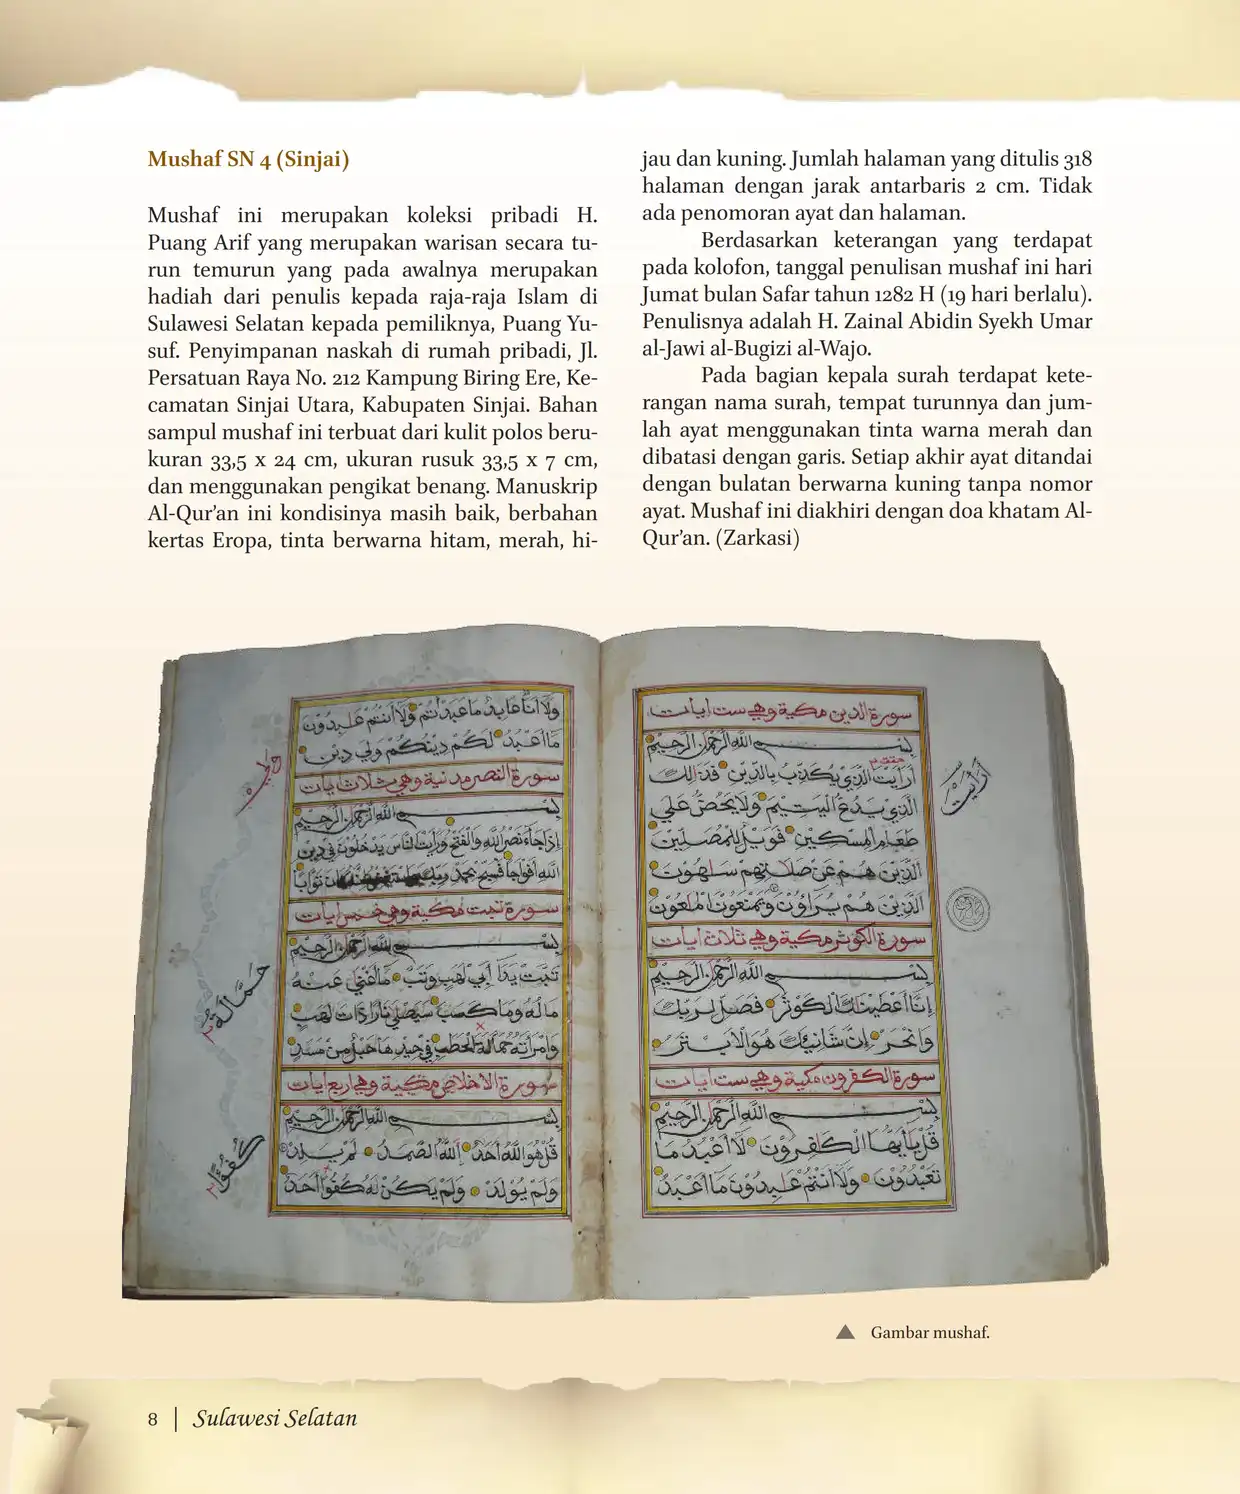 Mushaf SN 4 (Sinjai)
Mushaf ini merupakan koleksi pribadi H.
Puang Arif yang merupakan warisan secara tu-
run temurun yang pada awalnya merupakan
hadiah dari penulis kepada raja-raja Islam di
Sulawesi Selatan kepada pemiliknya, Puang Yu-
suf. Penyimpanan naskah di rumah pribadi, Jl.
Persatuan Raya No. 212 Kampung Biring Ere, Ke-
camatan Sinjai Utara, Kabupaten Sinjai. Bahan
sampul mushaf ini terbuat dari kulit polos beru-
kuran 33,5 x 24 cm, ukuran rusuk 33,5 x 7 cm,
dan menggunakan pengikat benang. Manuskrip
Al-Qur’an ini kondisinya masih baik, berbahan
kertas Eropa, tinta berwarna hitam, merah, hi-
jau dan kuning. Jumlah halaman yang ditulis 318
halaman dengan jarak antarbaris 2 cm. Tidak
ada penomoran ayat dan halaman.
Berdasarkan keterangan yang terdapat
pada kolofon, tanggal penulisan mushaf ini hari
Jumat bulan Safar tahun 1282 H (19 hari berlalu).
Penulisnya adalah H. Zainal Abidin Syekh Umar
al-Jawi al-Bugizi al-Wajo.
Pada bagian kepala surah terdapat kete-
rangan nama surah, tempat turunnya dan jum-
lah ayat menggunakan tinta warna merah dan
dibatasi dengan garis. Setiap akhir ayat ditandai
dengan bulatan berwarna kuning tanpa nomor
ayat. Mushaf ini diakhiri dengan doa khatam Al-
Qur’an. (Zarkasi)
سورة الدين مكية وهي ست ايات
بسم الله الرحمن الرحيم
ارايت الذي يكذب بالدين فذالك
الذي يدع اليتيم ولا يحض علي
طعام المسكين فويل للمصلين
الذين هم عن صلاتهم ساهون
الذين هم يراؤن ويمنعون الماعون
سورة الكوثر مكية وهي ثلاث ايات
بسم الله الرحمن الرحيم
انا اعطيناك الكوثر فصل لربك
وانحر ان شانيك هو الابتر
سورة الكفرون مكية وهي ست ايات
بسم الله الرحمن الرحيم
قل يايها الكفرون لا اعبد ما
تعبدون ولا انتم عابدون ما اعبد
أرأيت
ولا انا عابد ما عبدتم ولا انتم عابدون
ما اعبد لكم دينكم ولي دين
سورة النصر مدنية وهي ثلاث ايات
بسم الله الرحمن الرحيم
اذا جاء نصر الله والفتح ورايت الناس يدخلون في دين
الله افواجا فسبح بحمد ربك توابا
سورة تبت مكية وهي خمس ايات
بسم الله الرحمن الرحيم
تبت يدا ابي لهب وتب ما اغني عنه
ماله وما كسب سيصلي نارا ذات لهب
وامراته حمالة الحطب في جيدها حبل من مسد
سورة الاخلاص مكية وهي اربع ايات
بسم الله الرحمن الرحيم
قل هو الله احد الله الصمد لم يلد
ولم يولد ولم يكن له كفوا احد
حمالة
كفوا
Gambar mushaf.
8 | Sulawesi Selatan